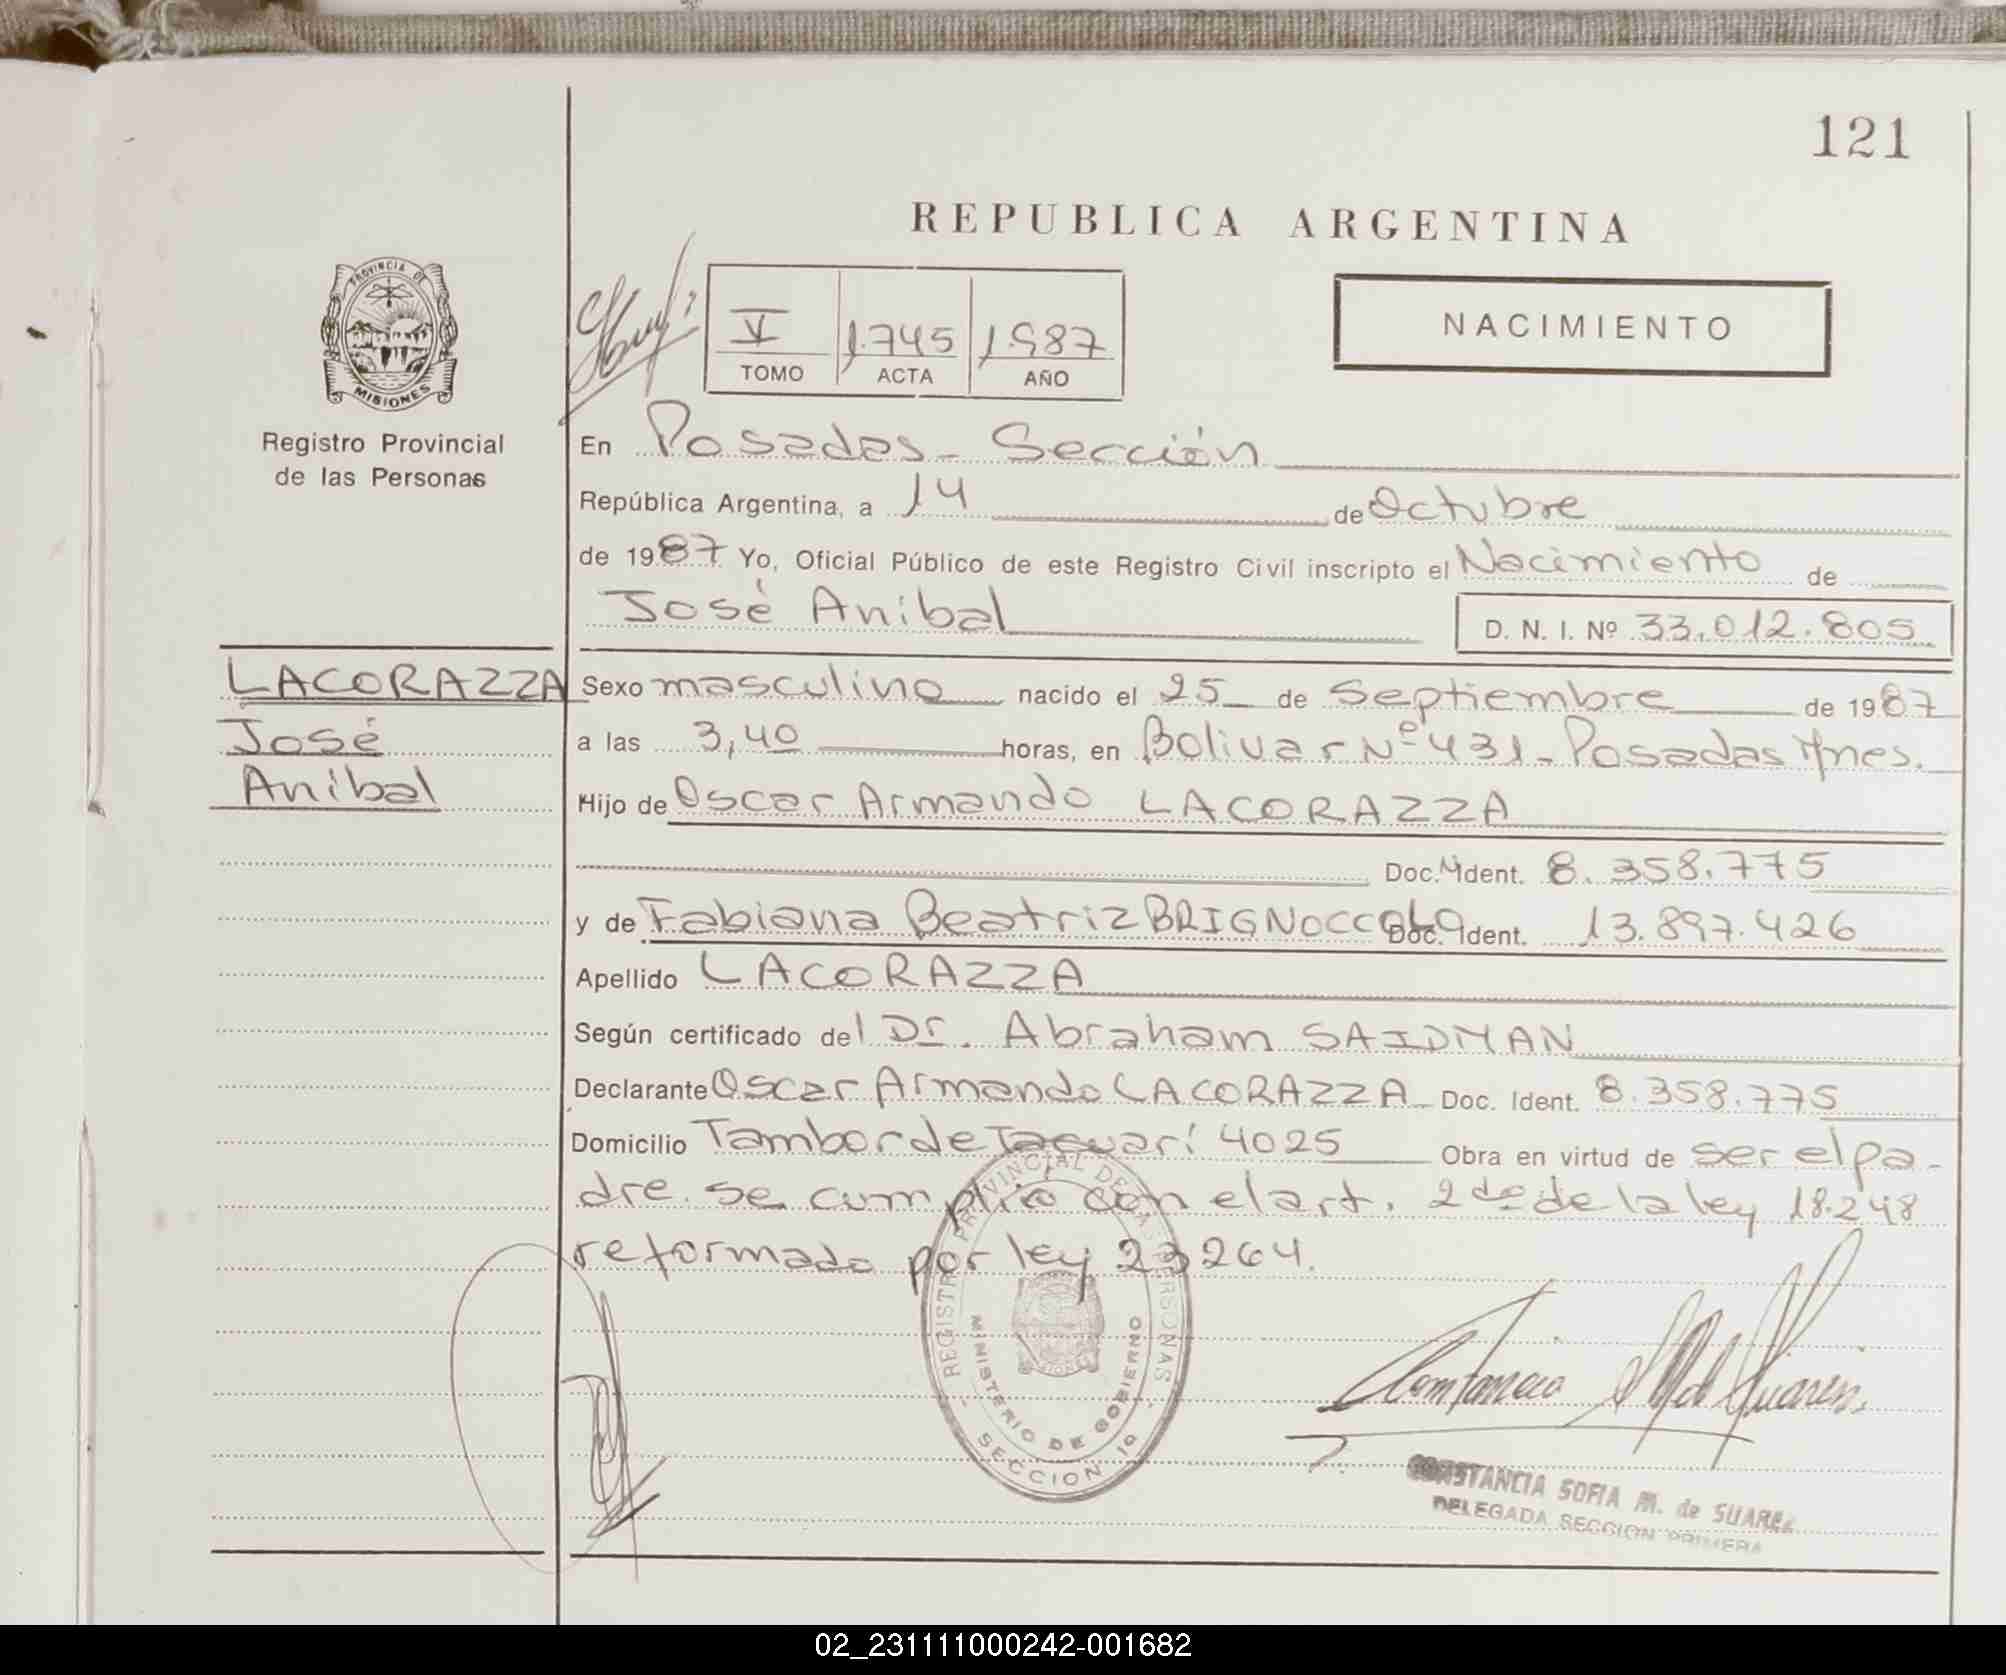 121
REPUBLICA ARGENTINA
PROVINCIA DE
MISIONES
Registro Provincial
de las Personas
V 1.745 1.987
TOMO ACTA AÑO
NACIMIENTO
En Posadas - Sección
República Argentina, a 14 de Octubre
de 1987 Yo, Oficial Público de este Registro Civil inscripto el Nacimiento de
José Anibal
D. N. I. Nº 33.012.805
LACORAZZA
José
Anibal
Sexo masculino nacido el 25 de Septiembre de 1987
a las 3,40 horas, en Bolivar Nº 431 - Posadas Mnes.
Hijo de Oscar Armando LACORAZZA
Doc. Ident. 8.358.775
y de Fabiana Beatriz BRIGNOCCOLO Doc. Ident. 13.897.426
Apellido LACORAZZA
Según certificado del Dr. Abraham SAIDMAN
Declarante Oscar Armando LACORAZZA Doc. Ident. 8.358.775
Domicilio Tambor de Tacuarí 4025 Obra en virtud de ser el pa-
dre. se cumplio con el art. 2do de la ley 18.248
reformado por ley 23264.
REGISTRO PROVINCIAL DE LAS PERSONAS
MINISTERIO DE GOBIERNO
SECCION 1a
CONSTANCIA SOFIA M. de SUAREZ
DELEGADA SECCION PRIMERA
02_231111000242-001682